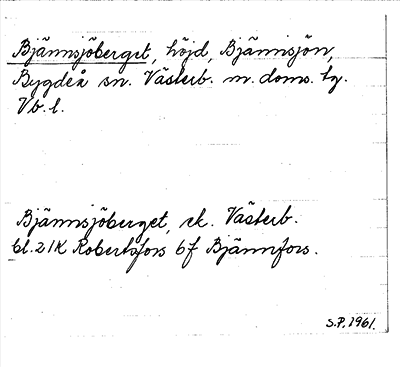 Bjännsjöberget, höjd, Bjännsjön,
Bygdeå sn. Västerb. m. doms. tg.
Vb. l.
Bjännsjöberget, ek. Västerb.
bl. 21K Robertsfors 6f Bjännfors.
S.P. 1961.